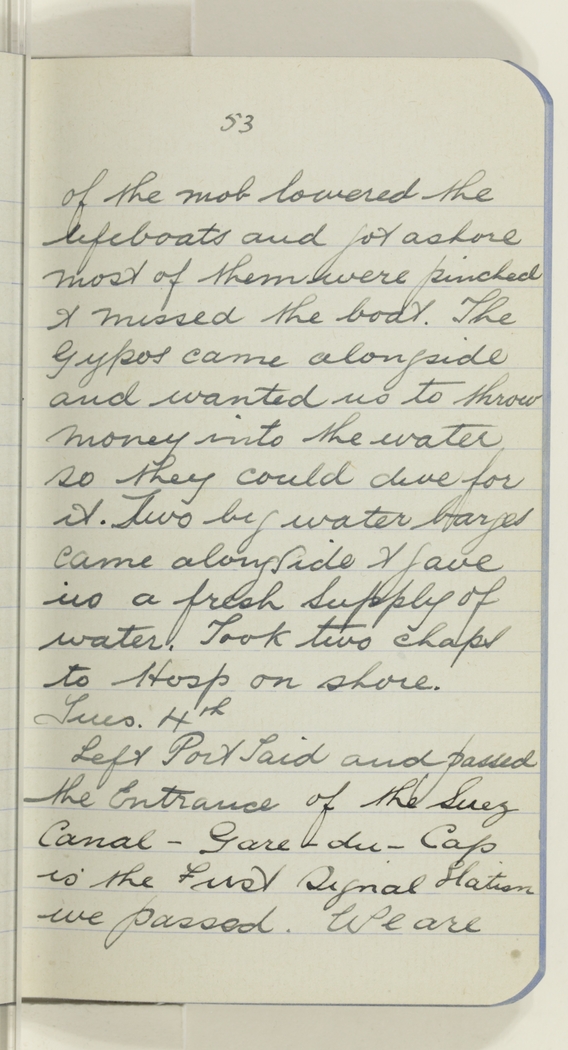 53
of the mob lowered the
lifeboats and got ashore
most of them were pinched
& missed the boat. The
Gypos came alongside
and wanted us to throw
money into the water
so they could dive for
it. Two big water barges
came alongside & gave
us a fresh supply of
water. Took two chaps
to Hosp on shore.
Tues. 4th
Left Port Said and passed
the Entrance of the Suez
Canal - Gare-du-Cap
is the First Signal Station
we passed. We are